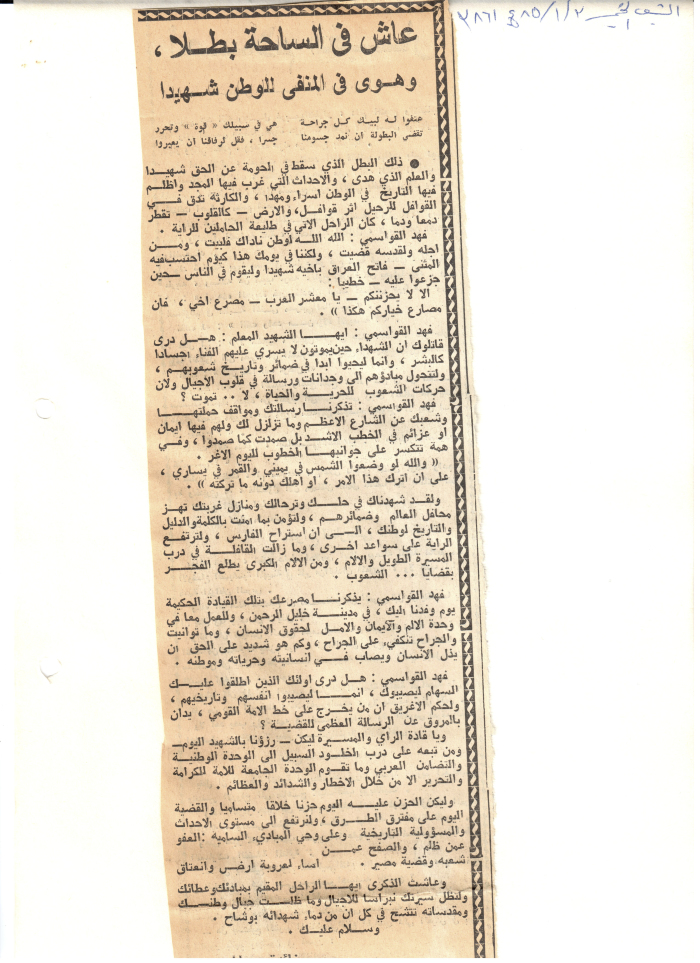 ٨٥/١/٢
عاش في الساحة بطلا ،
وهوى في المنفى للوطن شهيدا
هتفوا له لبيك كل جراحة
هي في سبيلك « قوة » وتحرر
تقضي البطولة ان نمد جسومنا
جسرا ، فقل لرفاقنا ان يعبروا
● ذلك البطل الذي سقط في الحومة عن الحق شهيدا
والعلم الذي هدى ، والاحداث التي غرب فيها المجد واظلم
فيها التاريخ في الوطن اسراء ومهدا ، والكارثة تدق في
القوافل للرحيل اثر قوافل ، والارض – كالقلوب – تقطر
دمعا ودما ، كان الراحل الاتي في طليعة الحاملين للراية .
فهد القواسمي : الله الله اوطن ناداك فلبيت ، ومن
اجله ولقدسه قضيت ، ولكننا في يومك هذا كيوم احتسب فيه
المثنى – فاتح العراق باخيه شهيدا وليقوم في الناس – حين
جزعوا عليه – خطيبا :
الا لا يحزننكم – يا معشر العرب – مصرع اخي ، فان
مصارع خياركم هكذا » .
فهد القواسمي : ايها الشهيد المعلم : هل درى
قاتلوك ان الشهداء حين يموتون لا يسري عليهم الفناء اجسادا
كالبشر ، وانما ليحيوا ابدا في ضمائر وتاريخ شعوبهم ،
ولتتحول مبادؤهم الى وجدانات ورسالة في قلوب الاجيال ولان
حركات الشعوب للحرية والحياة ، لا .. تموت ؟
فهد القواسمي : تذكرنا رسالتك ومواقف حملتها
وشعبك عن الشارع الاعظم وما تزلزل لك ولهم فيها ايمان
او عزائم في الخطب الاشد بل صمدت كما صمدوا ، وفي
همة تتكسر على جوانبها الخطوب لليوم الاغر .
« والله لو وضعوا الشمس في يميني والقمر في يساري ،
على ان اترك هذا الامر ، او اهلك دونه ما تركته » .
ولقد شهدناك في حلك وترحالك ومنازل غربتك تهز
محافل العالم وضمائرهم ، ولتؤمن بما امنت بالكلمة والدليل
والتاريخ لوطنك ، الى ان استراح الفارس ، ولترتفع
الراية على سواعد اخرى ، وما زالت القافلة في درب
المسيرة الطويل والالام ، ومن الالام الكبرى يطلع الفجر
بقضايا ... الشعوب .
فهد القواسمي : يذكرنا مصرعك بتلك القيادة الحكيمة
يوم وفدنا اليك ، في مدينة خليل الرحمن ، وللعمل معا في
وحدة الالم والايمان والامل لحقوق الانسان ، وما توانيت
والجراح تتكىء على الجراح ، وكم هو شديد على الحق ان
يذل الانسان ويصاب في انسانيته وحرياته وموطنه .
فهد القواسمي : هل درى اولئك الذين اطلقوا عليك
السهام ليصيبوك ، انما ليصيبوا انفسهم وتاريخهم ،
ولحكم الاغريق ان من يخرج على خط الامة القومي ، يدان
بالمروق عن الرسالة العظمى للقضية ؟
ويا قادة الراي والمسيرة ليكن – رزؤنا بالشهيد اليوم –
ومن تبعه على درب الخلود السبيل الى الوحدة الوطنية
والتضامن العربي وما تقوم الوحدة الجامعة للامة للكرامة
والتحرير الا من خلال الاخطار والشدائد والعظائم .
وليكن الحزن عليه اليوم حزنا خلاقا متساميا والقضية
اليوم على مفترق الطرق ، ولترتفع الى مستوى الاحداث
والمسؤولية التاريخية وعلى وحي المبادىء السامية : العفو
عمن ظلم ، والصفح عمن
اساء لعروبة ارض وانعتاق
شعبه وقضية مصير .
وعاشت الذكرى ايها الراحل المقيم بمبادئك وعطائك
ولتظل سيرتك نبراسا للاجيال وما ظلت جبال وطنك
ومقدساته تتشح في كل ان من دماء شهدائه بوشاح .
وسلام عليك .